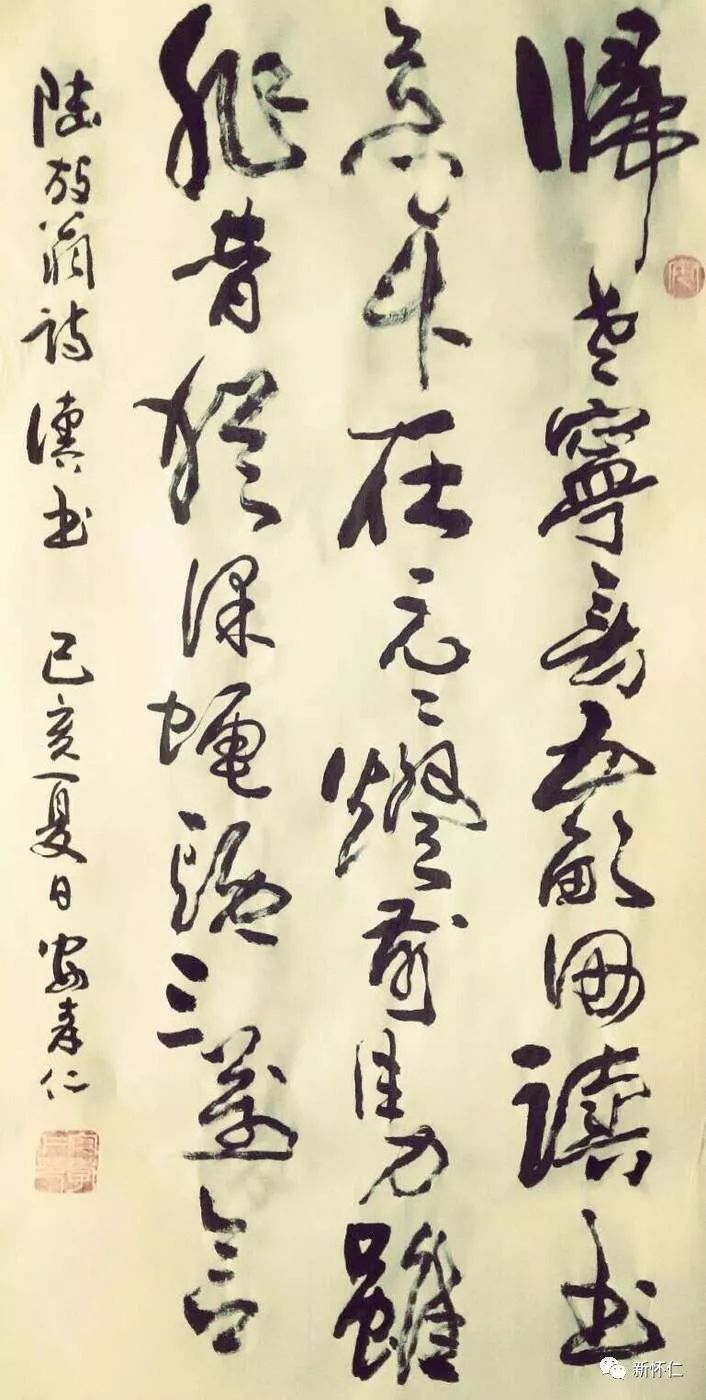 歸老寧無五畝園讀書
意本在元々燈前力雖
非昔猶課蠅頭三萬言
陸放翁詩讀书 己亥夏日安孝仁
新怀仁